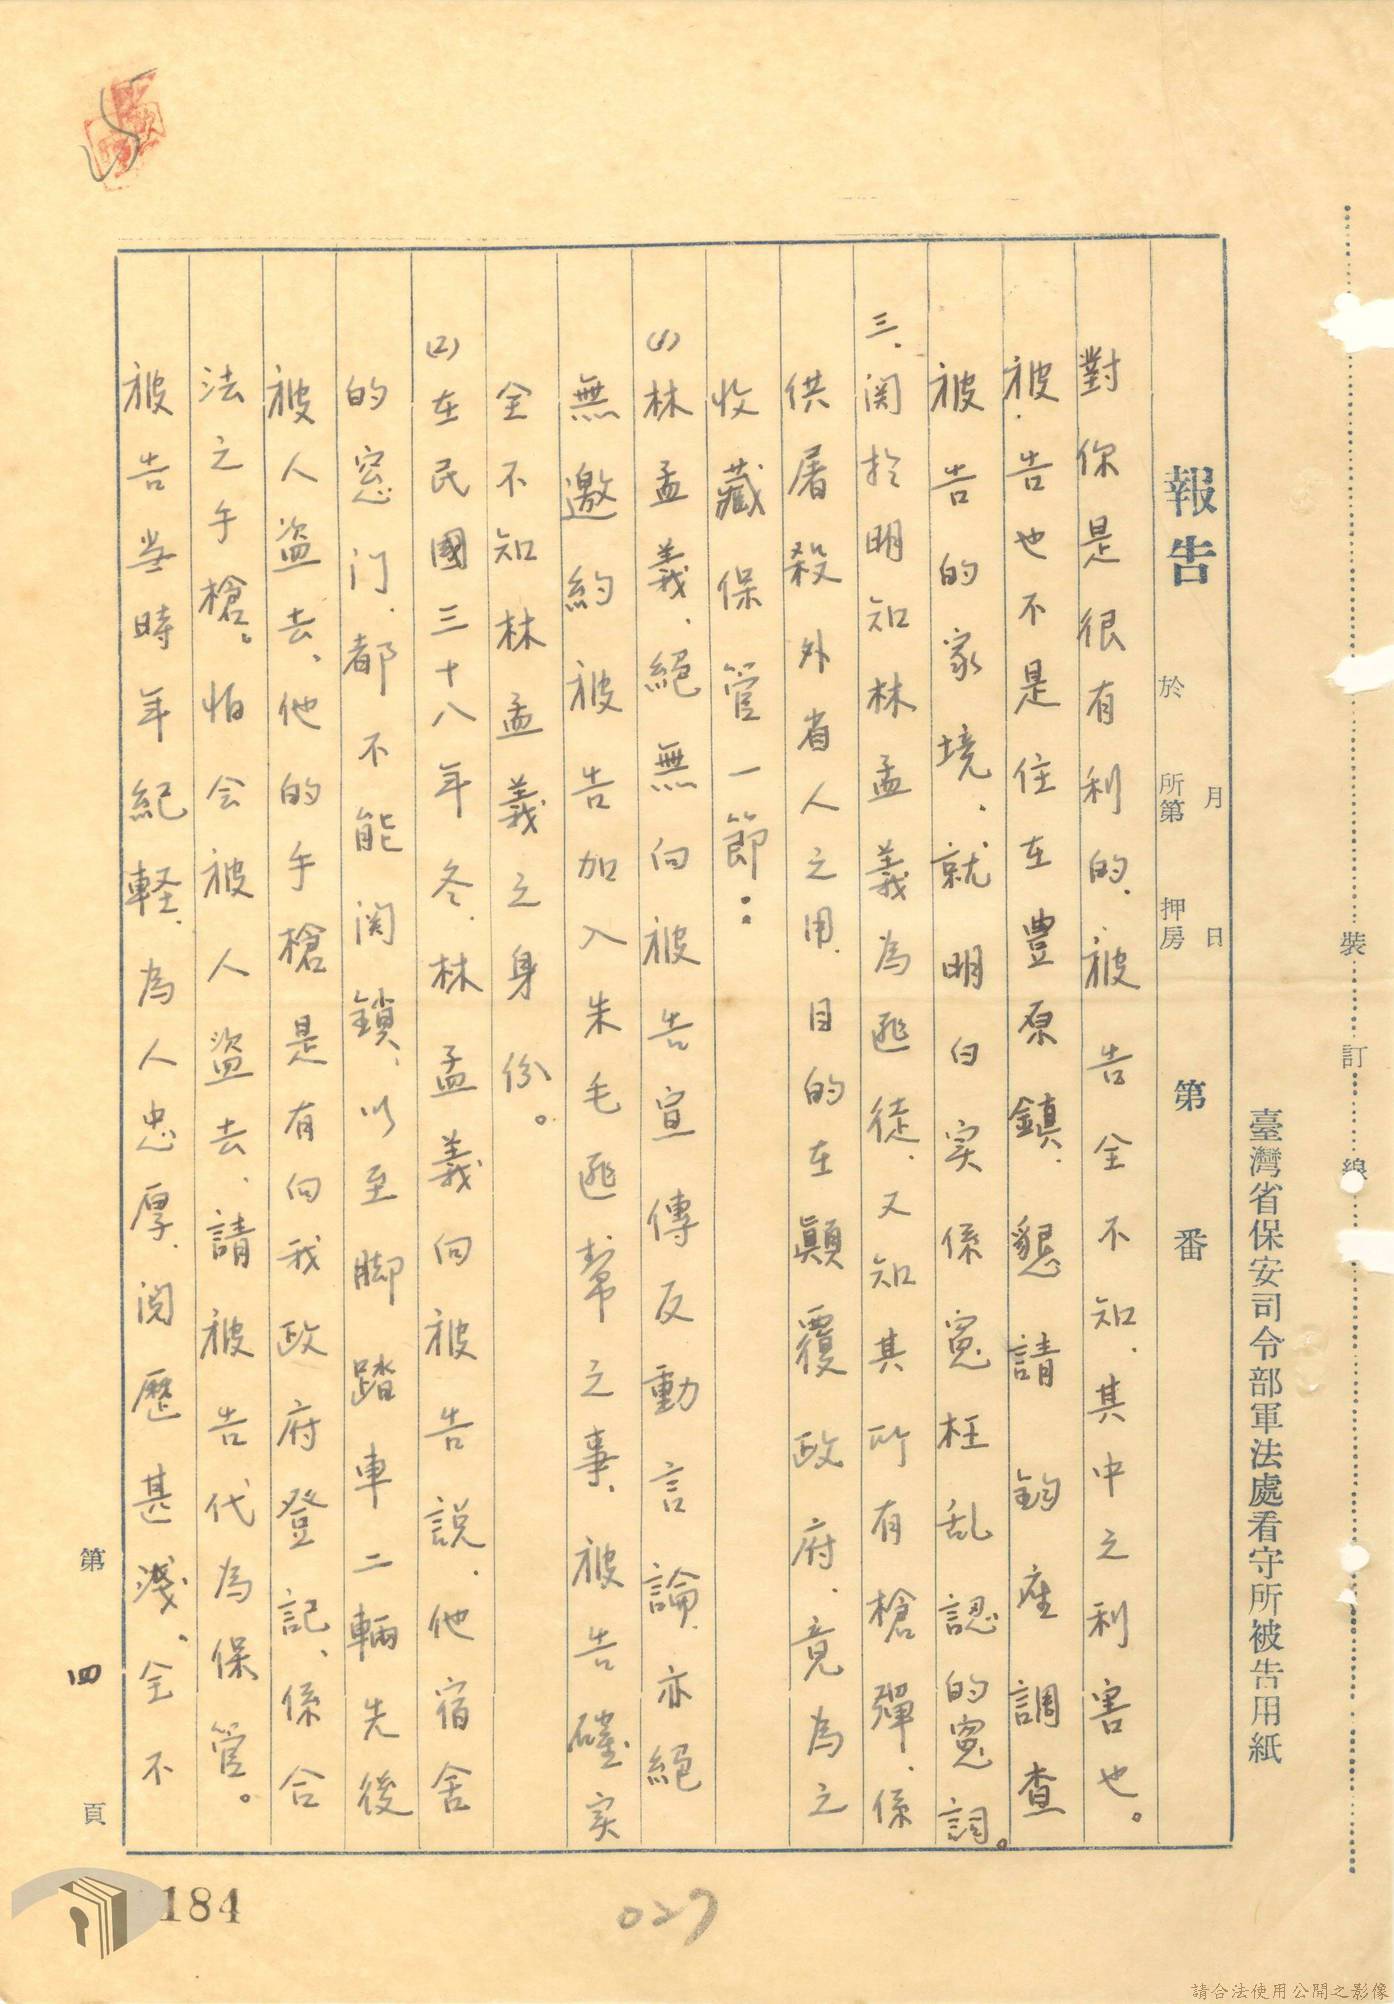 裝訂線
臺灣省保安司令部軍法處看守所被告用紙
月 日
報告 於 所第 押房 第 番
對你是很有利的、被告全不知、其中之利害也。
被告也不是住在豊原鎮、懇請 鈞座調查
被告的家境、就明白实係寃枉乱認的寃詞。
三、関於明知林孟義為匪徒、又知其所有槍彈、係
供屠殺外省人之用、目的在顛覆政府、竟為之
收藏保管一節：
(1)林孟義、絕無向被告宣傳反動言論、亦絕
無邀約被告加入朱毛匪幇之事、被告確实
全不知林孟義之身份。
(2)在民國三十八年冬、林孟義向被告説、他宿舍
的窓门、都不能関鎖、以至脚踏車二輛先後
被人盗去、他的手槍是有向我政府登記、係合
法之手槍。怕会被人盗去、請被告代為保管。
被告当時年紀軽、為人忠厚、閲歷甚淺、全不
第 四 頁
184
027
請合法使用公開之影像